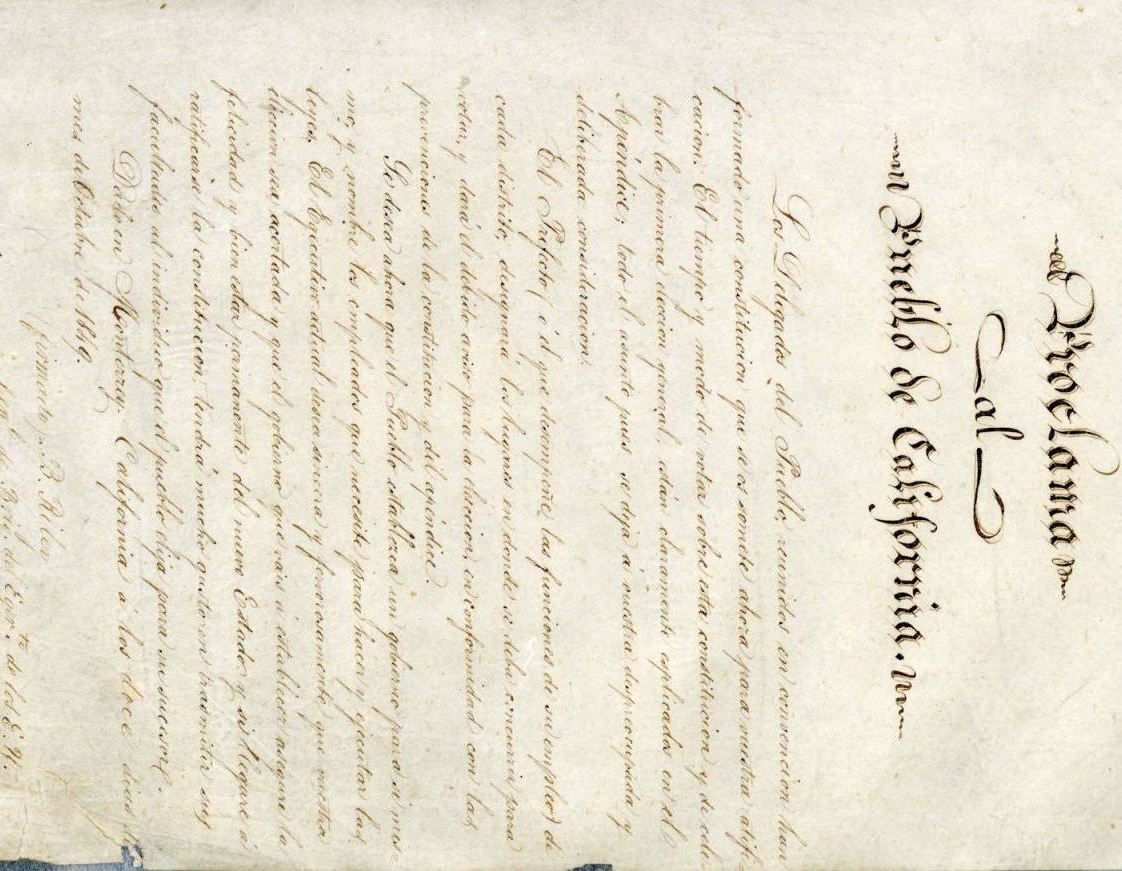 Proclama
al
Pueblo de California.
Los Delegados del Pueblo, reunidos en convencion han
formado una constitucion que se os somete ahora para vuestra ratifi-
cacion. El tiempo y modo de votar sobre esta constitucion y de cele-
brar la primera eleccion general, estan claramente esplicados en el
Apéndice; todo el asunto pues se deja á vuestra despreocupada y
deliberada consideracion.
El Prefecto (ó el que desempeñe las funciones de su empleo) de
cada distrito, designará los lugares en donde se debe concurrir para
votar, y dará el debido aviso para la eleccion, en conformidad con las
provenciones de la constitucion y del apéndice.
Se desea ahora que el Pueblo establezca un gobierno para si mis-
mo, y nombre los empleados que necesite para hacer y ejecutar las
leyes. El Egecutivo actual desea sincera y fervorosamente que vuestra
eleccion sea acertada y que el gobierno que vais á establecer asegure la
felicidad y bien estar permanente del nuevo Estado, y si llegare á
ratificarse la constitucion, tendrá mucho gusto en trasmitir sus
facultades al individuo que el pueblo elija para su sucesor.
Dado en Monterey, California á los doce dias del
mes de Octubre de 1849.
firmado B. Riley
Gral. Brig. de Eger.to de los E.U.